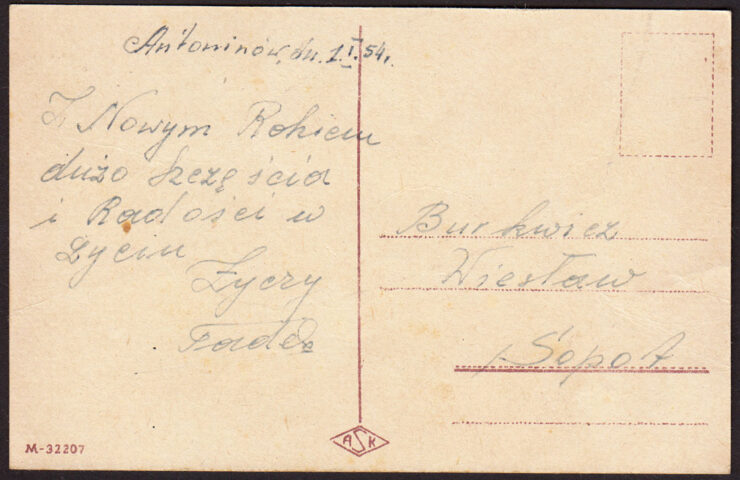 Antoninów, dn. 1.I.54r.
Z Nowym Rokiem
dużo Szczęścia
i Radości w
Życiu
Życzy
Burkwicz
Wiesław
Sopot
M-32207
ASK